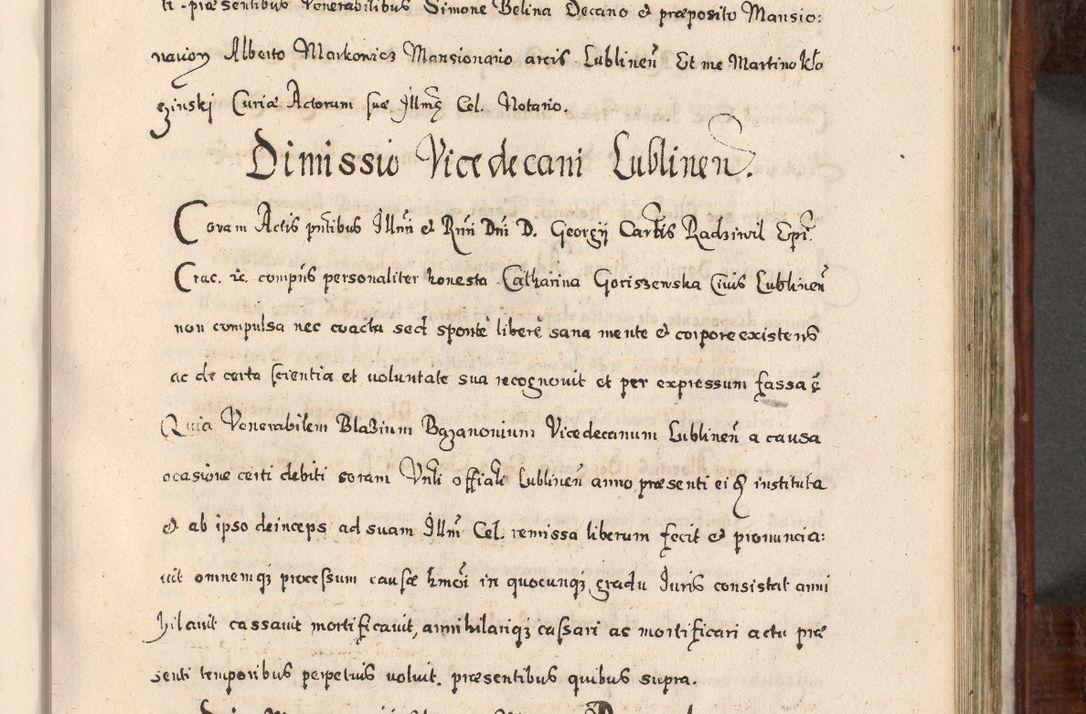 ti præsentibus Venerabilibus Simone Belina Decano et præposito Mansio:
narion Alberto Markowicz Mansionario arcis Lublinen̄ Et me Martino Kło
czinskj Curiæ Actorum suæ Illmę Cel. Notario.
Dimissio Vicedecani Lublinen̄.
Coram Actis pn̄tibus Illmi et Rmi Dni D. Georgij Cartis Radziwil Epi
Crac. etc. compn̄s personaliter honesta Catharina Goriszewska Civis Lublinen̄
non compulsa nec coacta sed sponte libere sana mente et corpore existens
ac de certa scientia et voluntate sua recognovit et per expressum fassa ē
Quia Venerabilem Blazium Bazanonium Vicedecanum Lublinen̄ a causa
ocasione certi debiti coram Vnli offiale Lublinen̄ anno præsenti ei instituta
et ab ipso deinceps ad suam Illm̄ Cel. remissa liberum fecit et pronuncia:
vit omnemq; processum causæ hmōi in quocunq; gradu Iuris consistat anni
hilauit cassauit mortificauit, annihilariq; cassari ac mortificari actu præ
senti temporibus perpetuis voluit. præsentibus quibus supra.